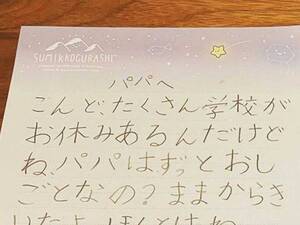 SUMIKKOGURASHI
パパへ
こんど、たくさん学校が
お休みあるんだけど
ね、パパはずっとおし
ごとなの?ままからき
いたよ。ほんとはね